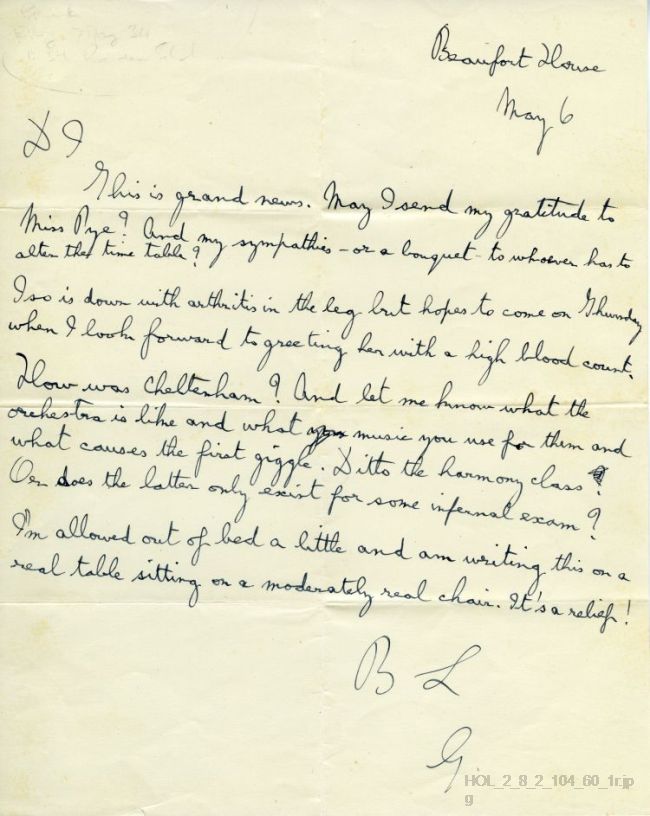 Beaufort House
May 6
D I
This is grand news. May I send my gratitude to
Miss Pye? And my sympathies - or a bouquet - to whoever has to
alter the time table?
Iso is down with arthritis in the leg but hopes to come on Thursday
when I look forward to greeting her with a high blood count.
How was Cheltenham? And let me know what the
orchestra is like and what music you use for them and
what causes the first giggle. Ditto the harmony class?
Or does the latter only exist for some infernal exam?
I'm allowed out of bed a little and am writing this on a
real table sitting on a moderately real chair. It's a relief!
B L
G.
HOL_2_8_2_104_60_1r.jp
g